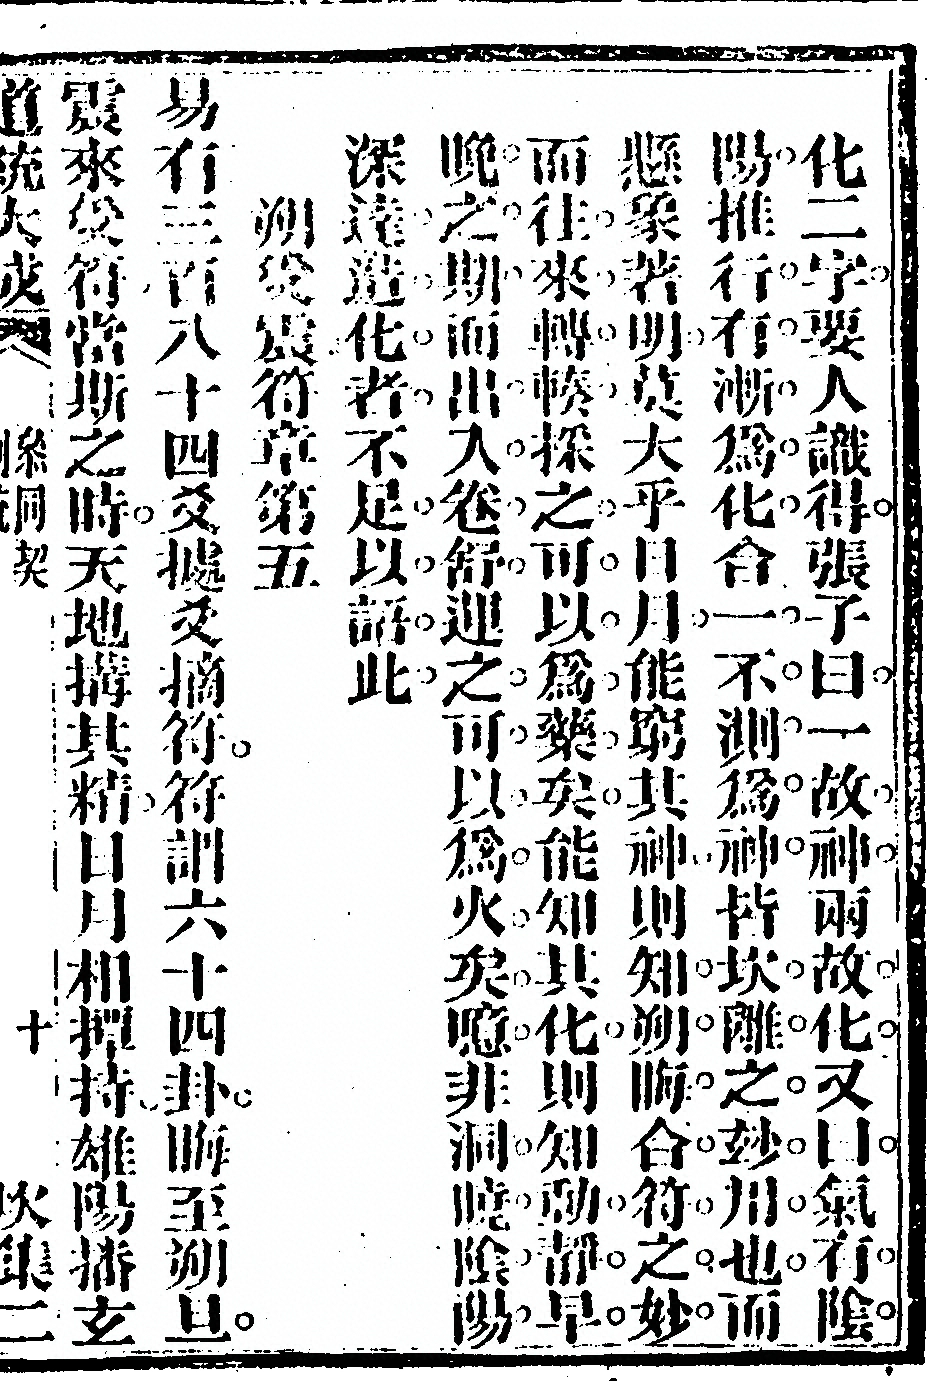 化二字要人識得張子曰一故神兩故化又曰氣有陰
陽推行有漸爲化合一不測爲神皆坎離之玅用也而
懸象著明莫大乎日月能窮其神則知朔晦合符之妙
而往來轉輳採之可以爲藥矣能知其化則知動靜早
晚之期而出入卷舒運之可以爲火矣噫非洞曉陰陽
深達造化者不足以語此
朔受震符章第五
易有三百八十四爻據爻摘符符謂六十四卦晦至朔旦
震來受符當斯之時天地搆其精日月相撢持雄陽播玄
道統大成 參同契 十 坎集二